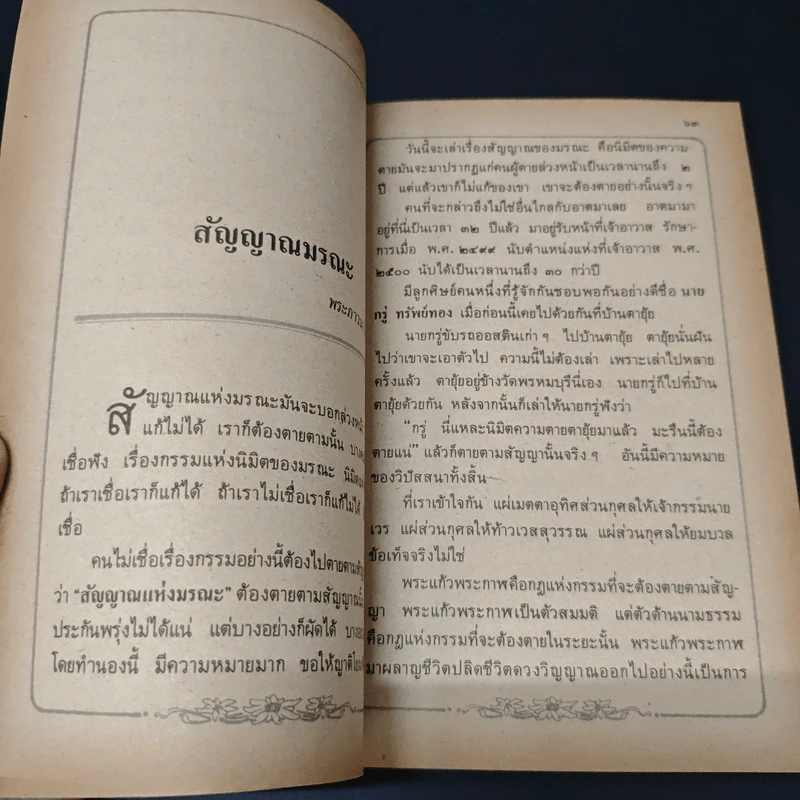 สัญญาณมรณะ
สัญญาณแห่งมรณะมันจะบอกล่วงหน้า
แก้ไม่ได้ เราก็ต้องตายตามนั้น
เชื่อฟัง เรื่องกรรมแห่งนิมิตของมรณะ
ถ้าเราเชื่อเราก็แก้ได้ ถ้าเราไม่เชื่อเราก็แก้ไม่ได้
เชื่อ
คนไม่เชื่อเรื่องกรรมอย่างนี้ต้องไปตายตาม
ว่า “สัญญาณแห่งมรณะ” ต้องตายตามสัญญาณนั้น
ประกันพรุ่งไม่ได้แน่ แต่บางอย่างก็ผัดได้
โดยทำนองนี้ มีความหมายมาก ขอให้ญาติโยม
๖๓
วันนี้จะเล่าเรื่องสัญญาณของมรณะ คือนิมิตของความ
ตายมันจะมาปรากฏแก่คนผู้ตายล่วงหน้าเป็นเวลานานถึง ๒
ปี แต่แล้วเขาก็ไม่แก้ของเขา เขาจะต้องตายอย่างนั้นจริง ๆ
คนที่จะกล่าวถึงไม่ใช่อื่นไกลกับอาตมาเลย อาตมามา
อยู่ที่นี่เป็นเวลา ๓๒ ปีแล้ว มาอยู่รับหน้าที่เจ้าอาวาส รักษา-
การเมื่อ พ.ศ. ๒๔๙๙ นับตำแหน่งแห่งที่เจ้าอาวาส พ.ศ.
๒๕๐๐ นับได้เป็นเวลานานถึง ๓๐ กว่าปี
มีลูกศิษย์คนหนึ่งที่รู้จักกันชอบพอกันอย่างดีชื่อ นาย
กรู่ ทรัพย์ทอง เมื่อก่อนนี้เคยไปด้วยกันที่บ้านตายุ้ย
นายกรู่ขับรถออสตินเก่า ๆ ไปบ้านตายุ้ย ตายุ้ยนั่นฝืน
ไปว่าเขาจะเอาตัวไป ความนี้ไม่ต้องเล่า เพราะเล่าไปหลาย
ครั้งแล้ว ตายุ้ยอยู่ข้างวัดพรหมบุรีนี่เอง นายกรู่ก็ไปที่บ้าน
ตายุ้ยด้วยกัน หลังจากนั้นก็เล่าให้นายกรู่ฟังว่า
“กรู่ นี่แหละนิมิตความตายตายุ้ยมาแล้ว มะรืนนี้ต้อง
ตายแน่” แล้วก็ตายตามสัญญานั้นจริง ๆ อันนี้มีความหมาย
ของวิปัสสนาทั้งสิ้น
ที่เราเข้าใจกัน แผ่เมตตาอุทิศส่วนกุศลให้เจ้ากรรมนาย
เวร แผ่ส่วนกุศลให้ท้าวเวสสุวรรณ แผ่ส่วนกุศลให้ยมบาล
ข้อเท็จจริงไม่ใช่
พระแก้วพระกาฬคือกฎแห่งกรรมที่จะต้องตายตามสัญ-
ญา พระแก้วพระกาฬเป็นตัวสมมติ แต่ตัวด้านนามธรรม
คือกฎแห่งกรรมที่จะต้องตายในระยะนั้น พระแก้วพระกาฬ
มาผลาญชีวิตปลิดชีวิตดวงวิญญาณออกไปอย่างนี้เป็นการ